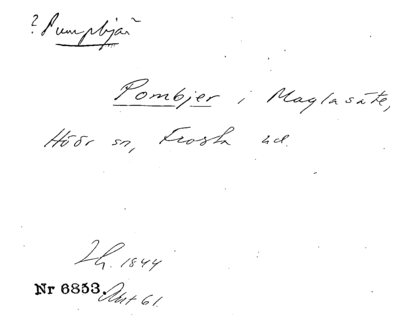 ? Pumpbjär
Pombjer i Maglasäte,
Höör sn, Frosta hd.
Lh. 1844
Nr 6853. Avt 61.